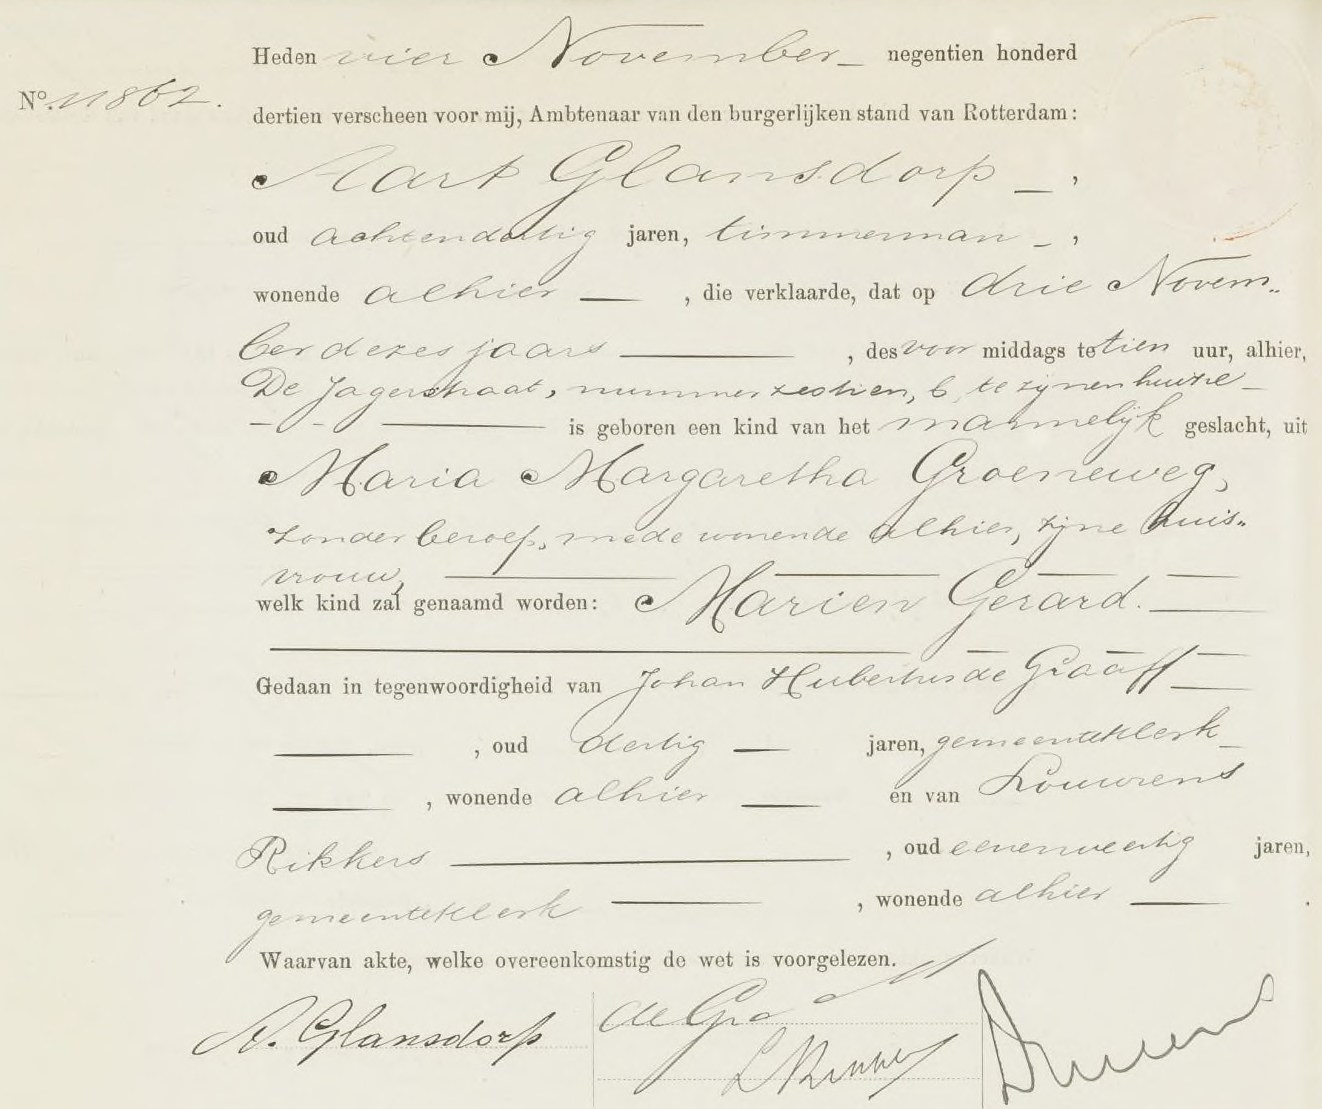 Heden vier November negentien honderd
No. 11862.
dertien verscheen voor mij, Ambtenaar van den burgerlijken stand van Rotterdam:
Aart Glansdorp,
oud achtendertig jaren, timmerman,
wonende alhier, die verklaarde, dat op drie Novem„
ber dezes jaars, des voor middags te tien uur, alhier,
De Jagerstraat, nummer zestien, b, te zijnen huize
is geboren een kind van het mannelijk geslacht, uit
Maria Margaretha Groeneweg,
zonder beroep, mede wonende alhier, zijne huis„
vrouw,
welk kind zal genaamd worden: Marien Gerard.
Gedaan in tegenwoordigheid van Johan Hubertus de Graaff
, oud dertig jaren, gemeenteklerk
, wonende alhier en van Louwrens
Rikkers, oud eenenveertig jaren,
gemeenteklerk, wonende alhier.
Waarvan akte, welke overeenkomstig de wet is voorgelezen.
A. Glansdorp de Gra